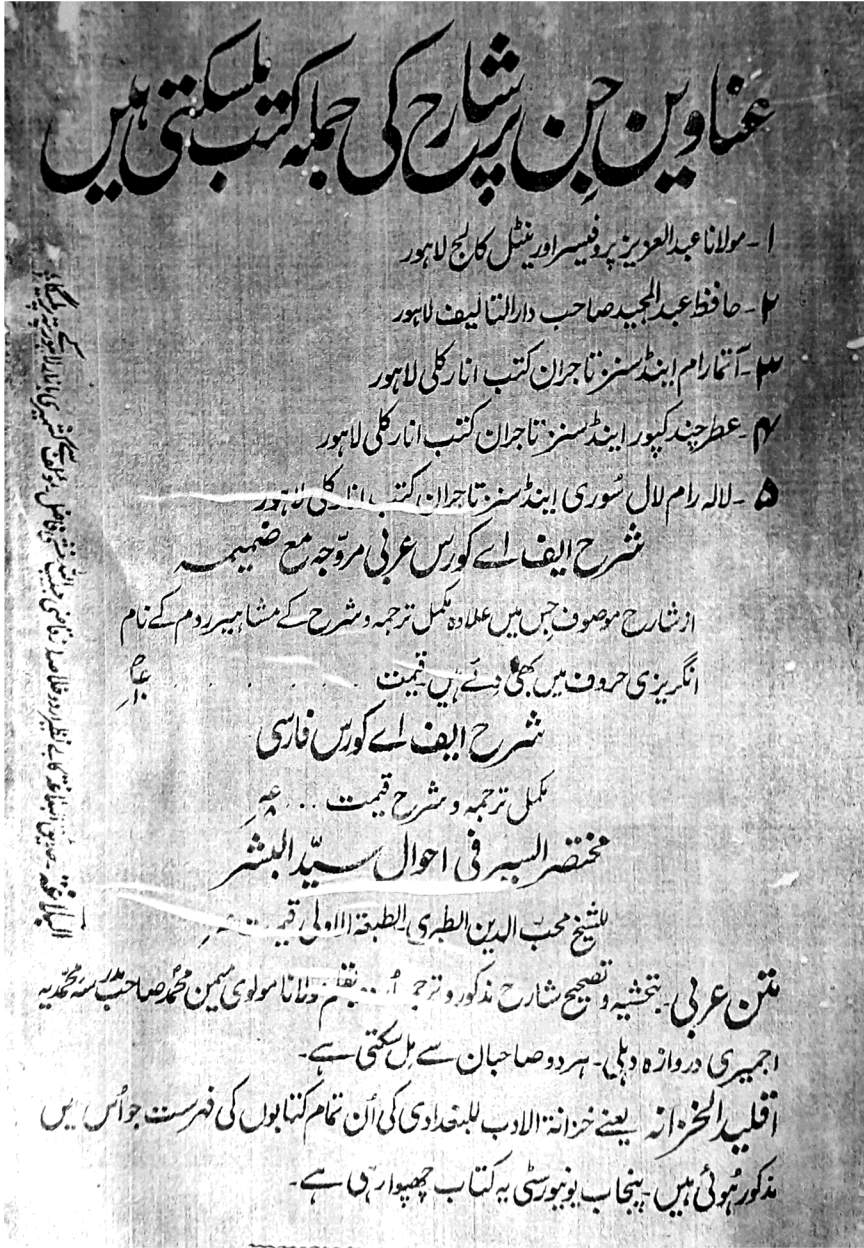 عناوین جن پر شارح کی جملہ کتب ملسکتی ہیں
۱۔ مولانا عبدالعزیز پروفیسر اورینٹل کالج لاہور
۲۔ حافظ عبدالمجید صاحب دارالتالیف لاہور
۳۔ آتما رام اینڈ سنز تاجران کتب انارکلی لاہور
۴۔ عطر چند کپور اینڈ سنز تاجران کتب انارکلی لاہور
۵۔ لالہ رام لال سُوری اینڈ سنز تاجران کتب انارکلی لاہور
شرح ایف اے کورس عربی مروّجہ مع ضمیمہ
از شارح موصوف جس میں علاوہ مکمل ترجمہ و شرح کے مشاہیر روم کے نام
انگریزی حروف میں بھی دئے ہیں قیمت . . . . . . . . .
شرح ایف اے کورس فارسی
مکمل ترجمہ و شرح قیمت . . .
مختصر السیر فی احوال سیّد البشر
للشیخ محبّ الدین الطبری۔ الطبعۃ الاولی قیمت
متن عربی۔ بتحشیہ و تصحیح شارح مذکور و ترجمہ بقلم مولانا مولوی محمد صاحب مدرسہ محمدّیہ
اجمیری دروازہ دہلی۔ ہر دو صاحبان سے مِل سکتی ہے۔
اقلید الخزانہ یعنے خزانۃ الادب للبغدادی کی اُن تمام کتابوں کی فہرست جو اُس میں
مذکور ہُوئی ہیں۔ پنجاب یونیورسٹی یہ کتاب چھپوا رہی ہے۔
البلاغۃ حدیق البلاغۃ کا بے نظیر اردو خلاصہ از قاضی حبیب اللہ منشی فاضل۔ مؤلف سے کشمیری بازار لاہور